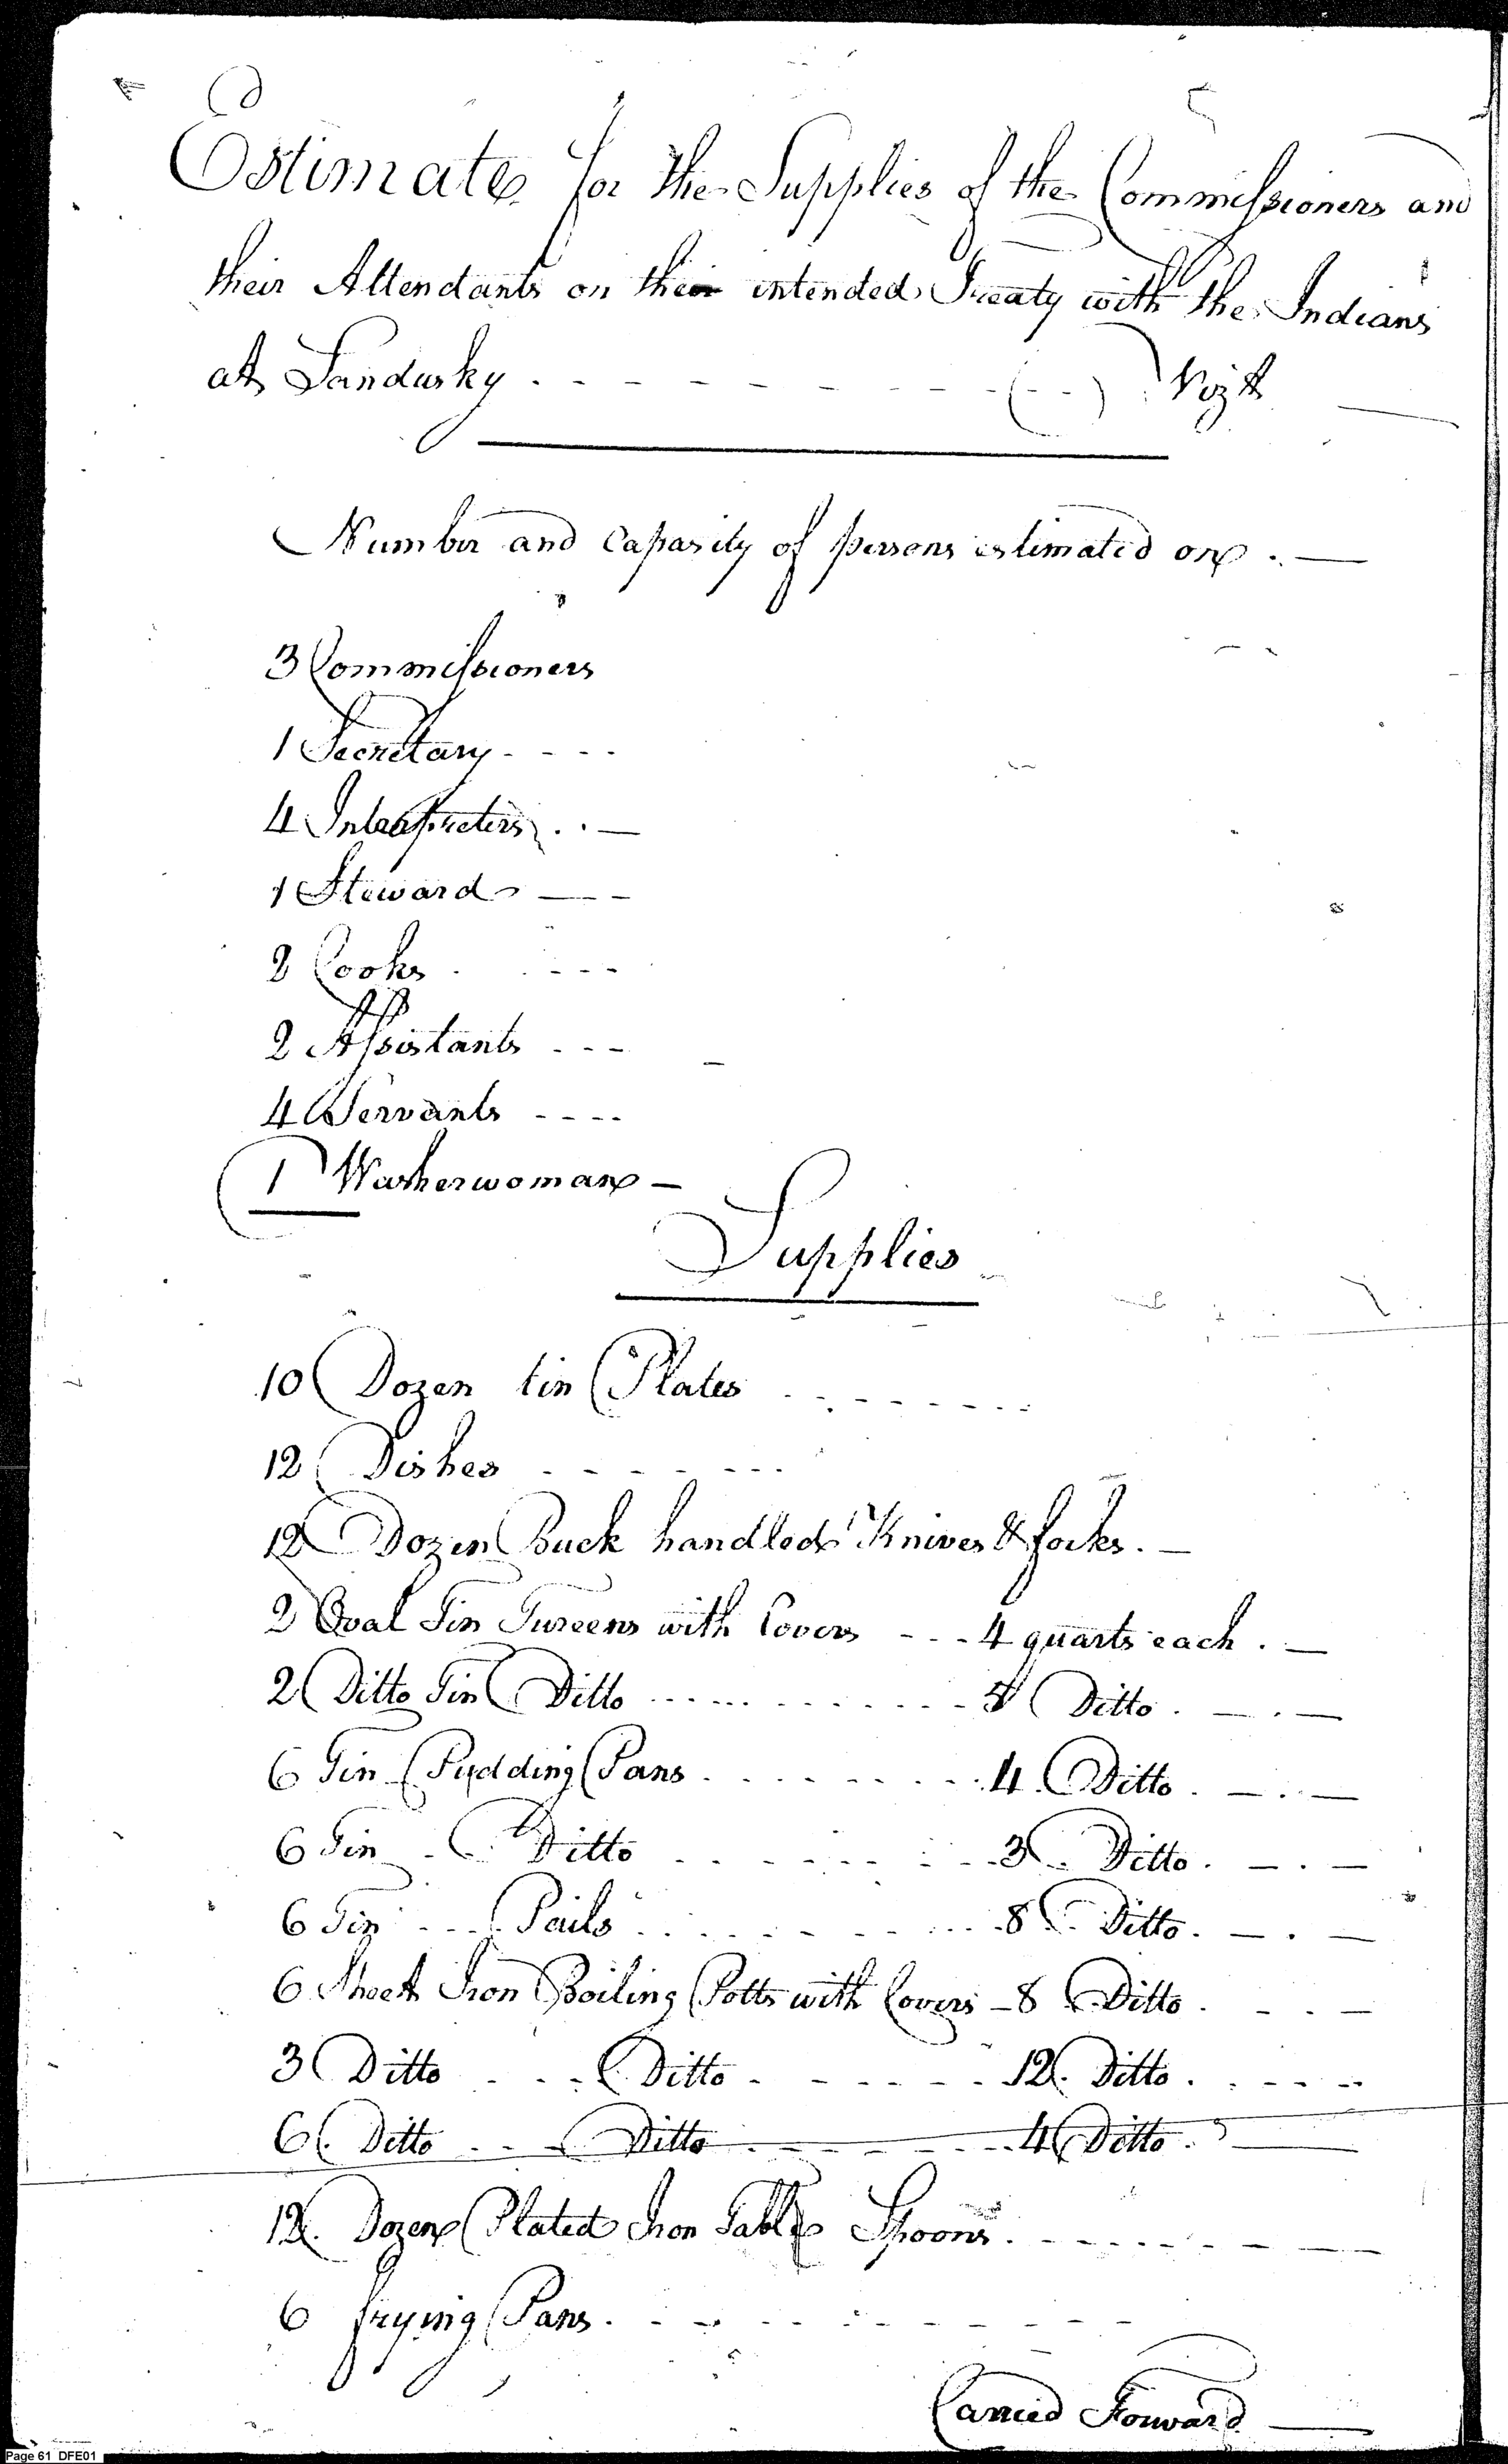 Estimate for the Supplies of the Commissioners and
their Attendants on their intended Treaty with the Indians
at Sandusky - - - - - - - - - - Vizt
Number and Capasity of persons estimated on . —
3 Commissioners
1 Secretary - - - -
4 Interpreters . . —
1 Steward — - -
2 Cooks . - - - -
2 Assistants - - -
4 Servants - - - -
1 Washerwoman —
Supplies
10 Dozen tin Plates - - - - - - - -
12 Dishes - - - - - - - -
12 Dozen Buck handled Knives & forks . —
2 Oval Tin Tureens with Covers - - - 4 quarts each . —
2 Ditto Tin Ditto - - - - - - - - - - Ditto . — . —
6 Tin Pudding Pans - - - - - - - - - 4 Ditto . — . —
6 Tin - Ditto - - - - - - - - - - 3 Ditto . — . —
6 Tin - - - Pails - - - - - - - - - - 8 Ditto . — . —
6 Sheet Iron Boiling Potts with Covers - 8 Ditto . - - —
3 Ditto - - - Ditto - - - - - - - 12 Ditto . - - - -
6 Ditto - - - Ditto - - - - - - - - 4 Ditto . —
12 Dozen Plated Iron Table Spoons . - - - - - - - —
6 frying Pans . - - - - - - - - -
Carried Forward —
Page 61 DFE01